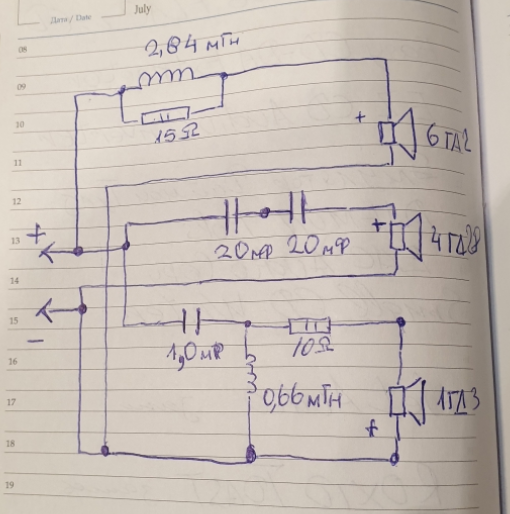 Дата / Date
July
08
09
10
11
12
13
14
15
16
17
18
19
2,84 мГн
15Ω
+
6 ГД2
+
20мф 20мф
+
4 ГД28
−
1,0мф
10Ω
0,66мГн
1ГД3
+